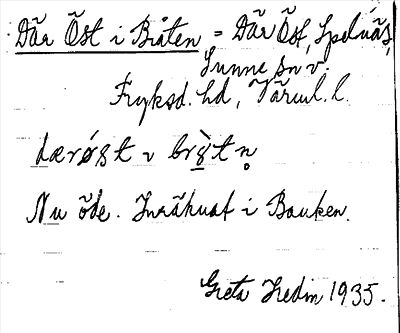 Där Öst i Bråten = Där Öst, Spelnäs,
Sunne sn v.
Fryksd. hd, Värml. l.
dærøst ɩ brɷ̀tn̥
Nu öde. Inräknat i Bauken.
Greta Hedin 1935.